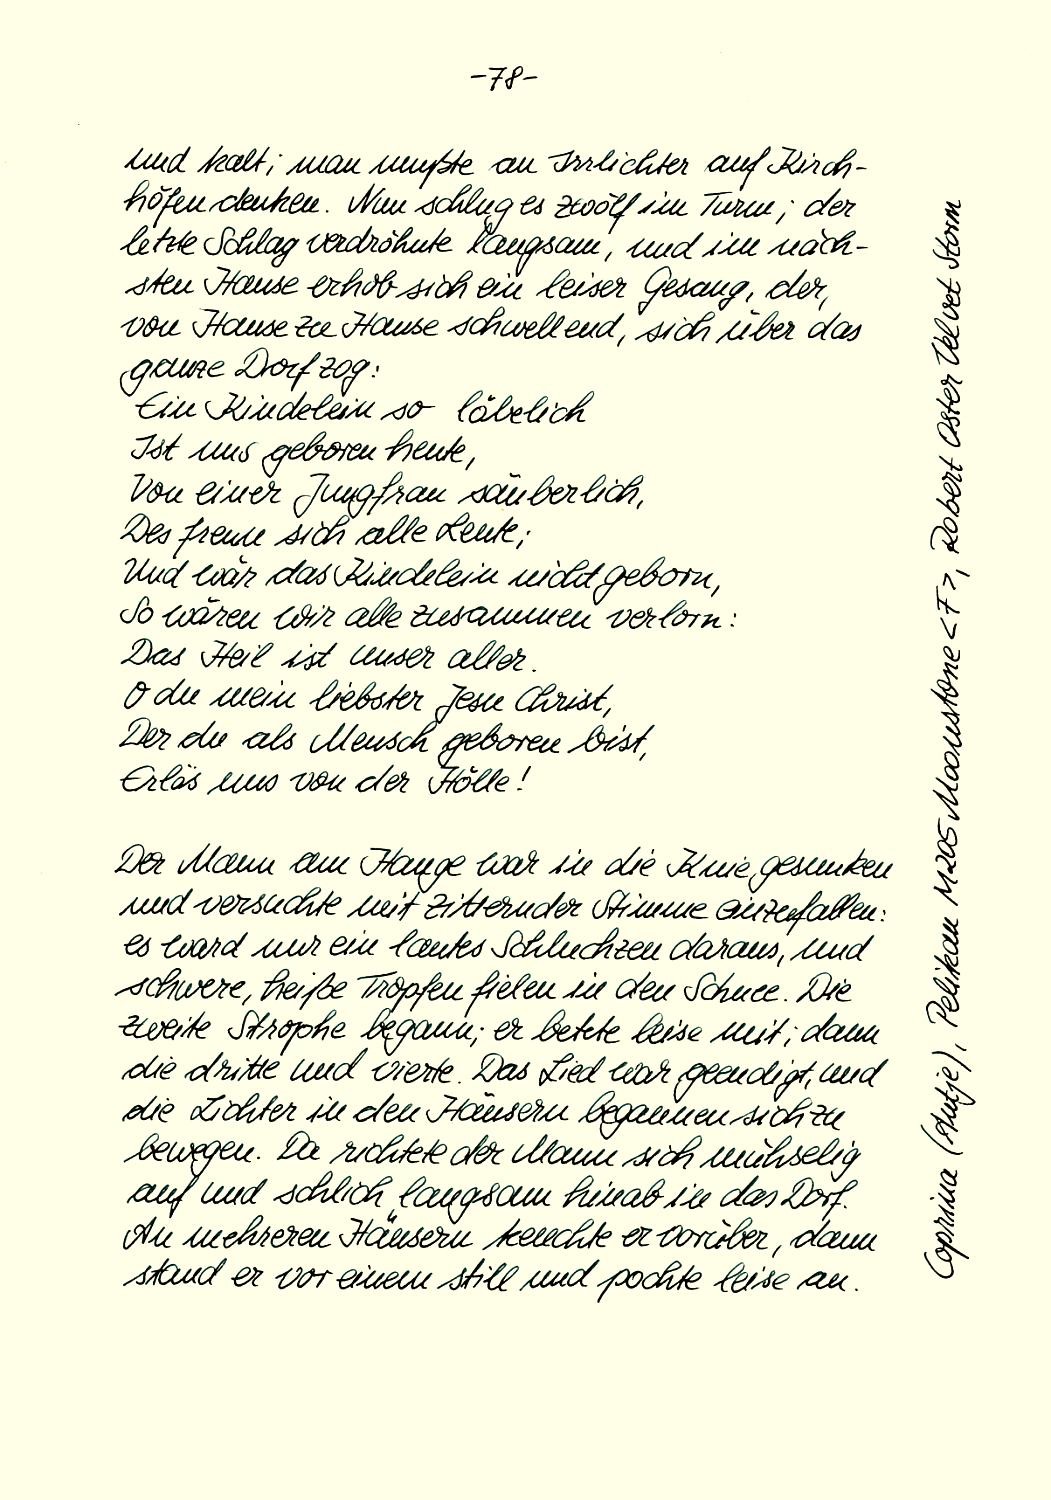 -78-
und kalt; man mußte an Irrlichter auf Kirch-
höfen denken. Nun schlug es zwölf im Turm; der
letzte Schlag verdröhnte langsam, und im näch-
sten Hause erhob sich ein leiser Gesang, der,
von Hause zu Hause schwellend, sich über das
ganze Dorf zog:
Ein Kindelein so löbelich
Ist uns geboren heute,
Von einer Jungfrau säuberlich,
Des freun sich alle Leute;
Und wär das Kindelein nicht geborn,
So wären wir alle zusammen verlorn:
Das Heil ist unser aller.
O du mein liebster Jesu Christ,
Der du als Mensch geboren bist,
Erlös uns von der Hölle!
Der Mann am Hange war in die Knie gesunken
und versuchte mit zitternder Stimme einzufallen:
es ward nur ein lautes Schluchzen daraus, und
schwere, heiße Tropfen fielen in den Schnee. Die
zweite Strophe begann; er betete leise mit; dann
die dritte und vierte. Das Lied war geendigt, und
die Lichter in den Häusern begannen sich zu
bewegen. Da richtete der Mann sich mühselig
auf und schlich langsam hinab in das Dorf.
An mehreren Häusern keuchte er vorüber, dann
stand er vor einem still und pochte leise an.
Coprina (dutje), Pelikan M205 Moonstone <F>, Robert Oster Velvet Storm